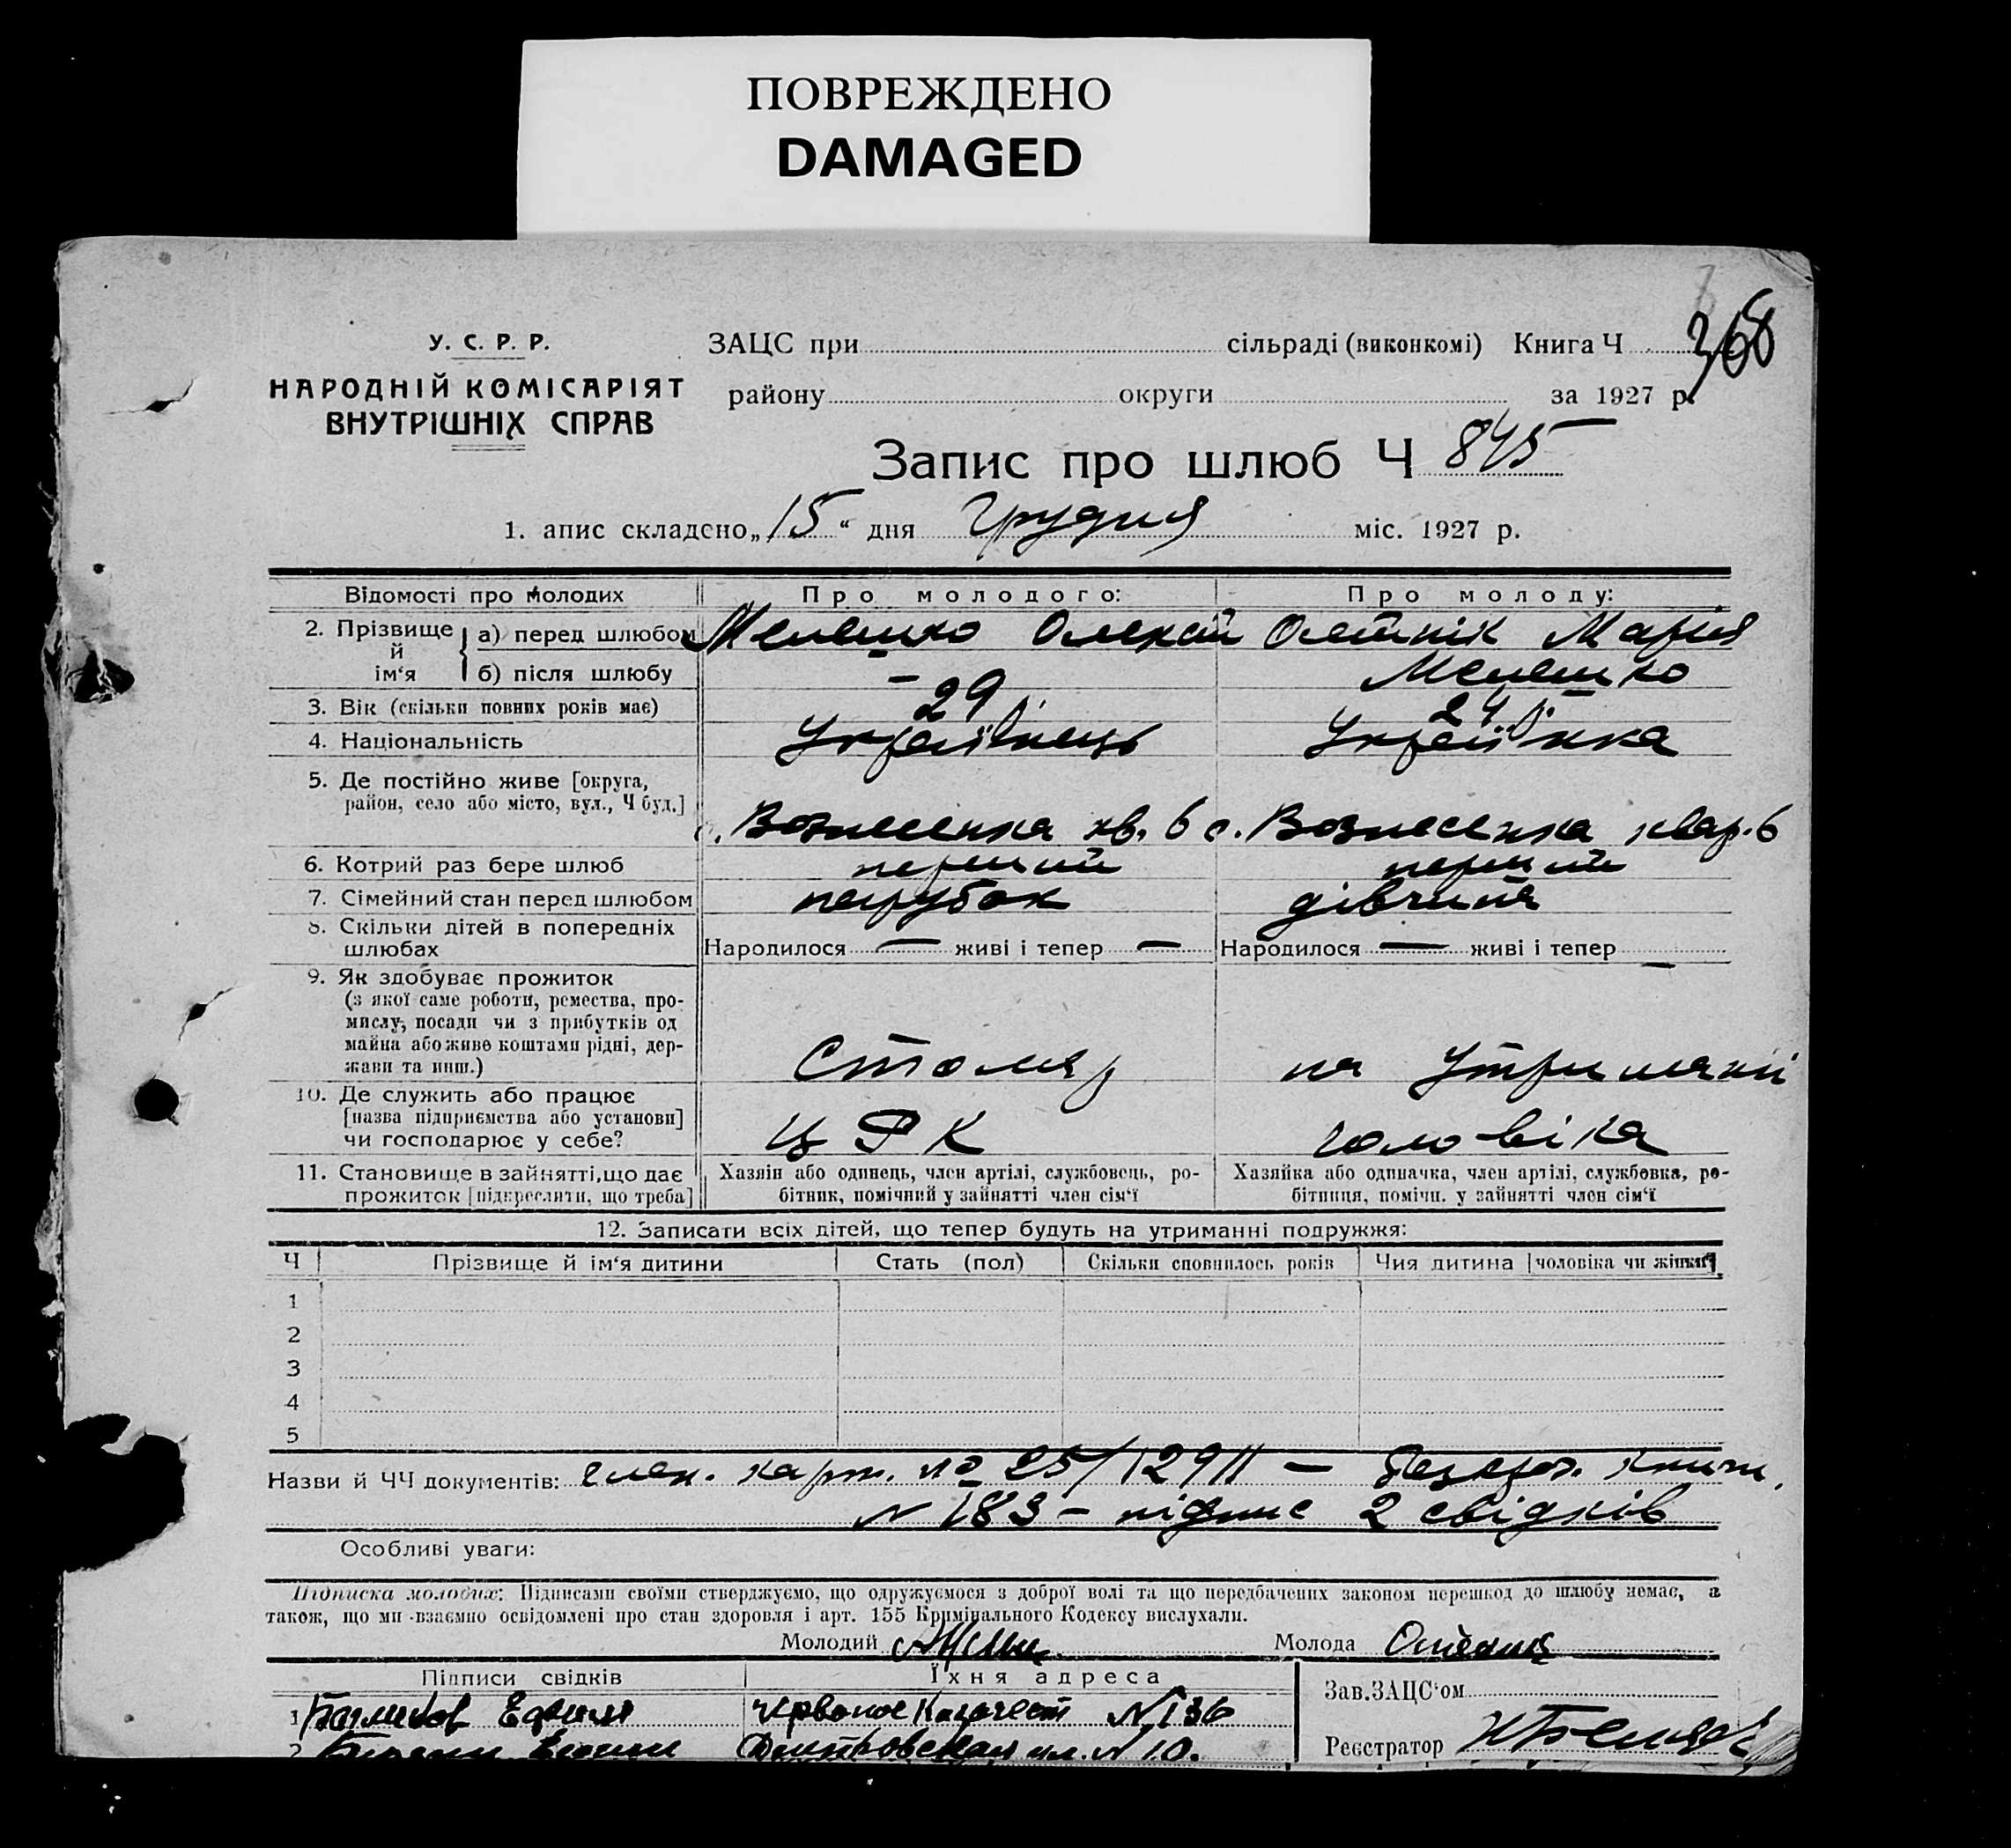 ПОВРЕЖДЕНО
DAMAGED
368
У. С. Р. Р.
НАРОДНІЙ КОМІСАРІЯТ
ВНУТРІШНІХ СПРАВ
ЗАЦС при сільраді (виконкомі) Книга Ч
району округи за 1927 р.
Запис про шлюб Ч 845
1. апис складено „15“ дня Грудня міс. 1927 р.
Відомості про молодих Про молодого: Про молоду:
2. Прізвище й ім‘я
а) перед шлюбом Мелешко Олексій Олейнік Марія
б) після шлюбу — Мелешко
3. Вік (скільки повних років має) 29 р. 24 р.
4. Національність Українець Українка
5. Де постійно живе [округа,
район, село або місто, вул., Ч буд.]
с. Вознесенка кв. 6 с. Вознесенка квар. 6
6. Котрий раз бере шлюб перший перший
7. Сімейний стан перед шлюбом парубок дівчина
8. Скільки дітей в попередніх
шлюбах Народилося — живі і тепер — Народилося — живі і тепер —
9. Як здобуває прожиток
(з якої саме роботи, ремества, про-
мислу, посади чи з прибутків од
майна або живе коштами рідні, дер-
жави та инш.) Столяр на утриманні
10. Де служить або працює
[назва підприємства або установи]
чи господарює у себе? ЦРК чоловіка
11. Становище в зайнятті, що дає
прожиток [підкреслити, що треба]
Хазяін або одинець, член артілі, службовець, ро-
бітник, помічний у зайнятті член сім‘ї
Хазяйка або одиначка, член артілі, службовка, ро-
бітниця, помічн. у зайнятті член сім‘ї
12. Записати всіх дітей, що тепер будуть на утриманні подружжя:
Ч Прізвище й ім‘я дитини Стать (пол) Скільки сповнилось років Чия дитина [чоловіка чи жінки]
1
2
3
4
5
Назви й ЧЧ документів: член. карт. № 25/12911 —
№ 183 — підпис 2 свідків
Особливі уваги:
Підписка молодих: Підписами своїми стверджуємо, що одружуємося з доброї волі та що передбачених законом перешкод до шлюбу немає, а
також, що ми взаємно освідомлені про стан здоровля і арт. 155 Кримінального Кодексу вислухали.
Молодий Молода
Підписи свідків Їхня адреса
Зав. ЗАЦС‘ом
1 № 136
2 № 10.
Реєстратор